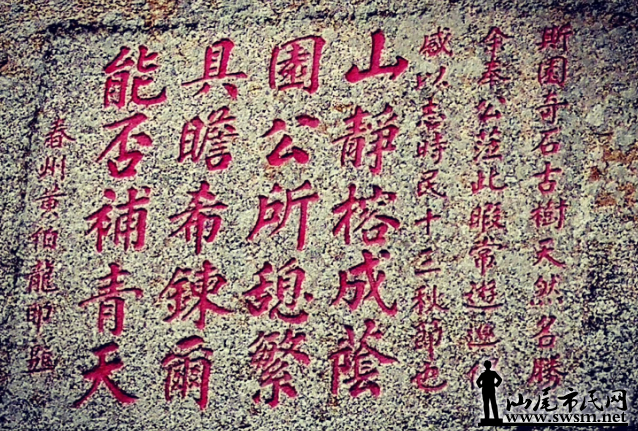 斯園奇石古樹天然名勝
今奉公蒞此暇常遊
感以志時民十三秋節也
山靜榕成蔭
園公所憩繁
具瞻希鍊爾
能否補青天
春州黃伯龍即題
汕尾市民网
www.swsm.net